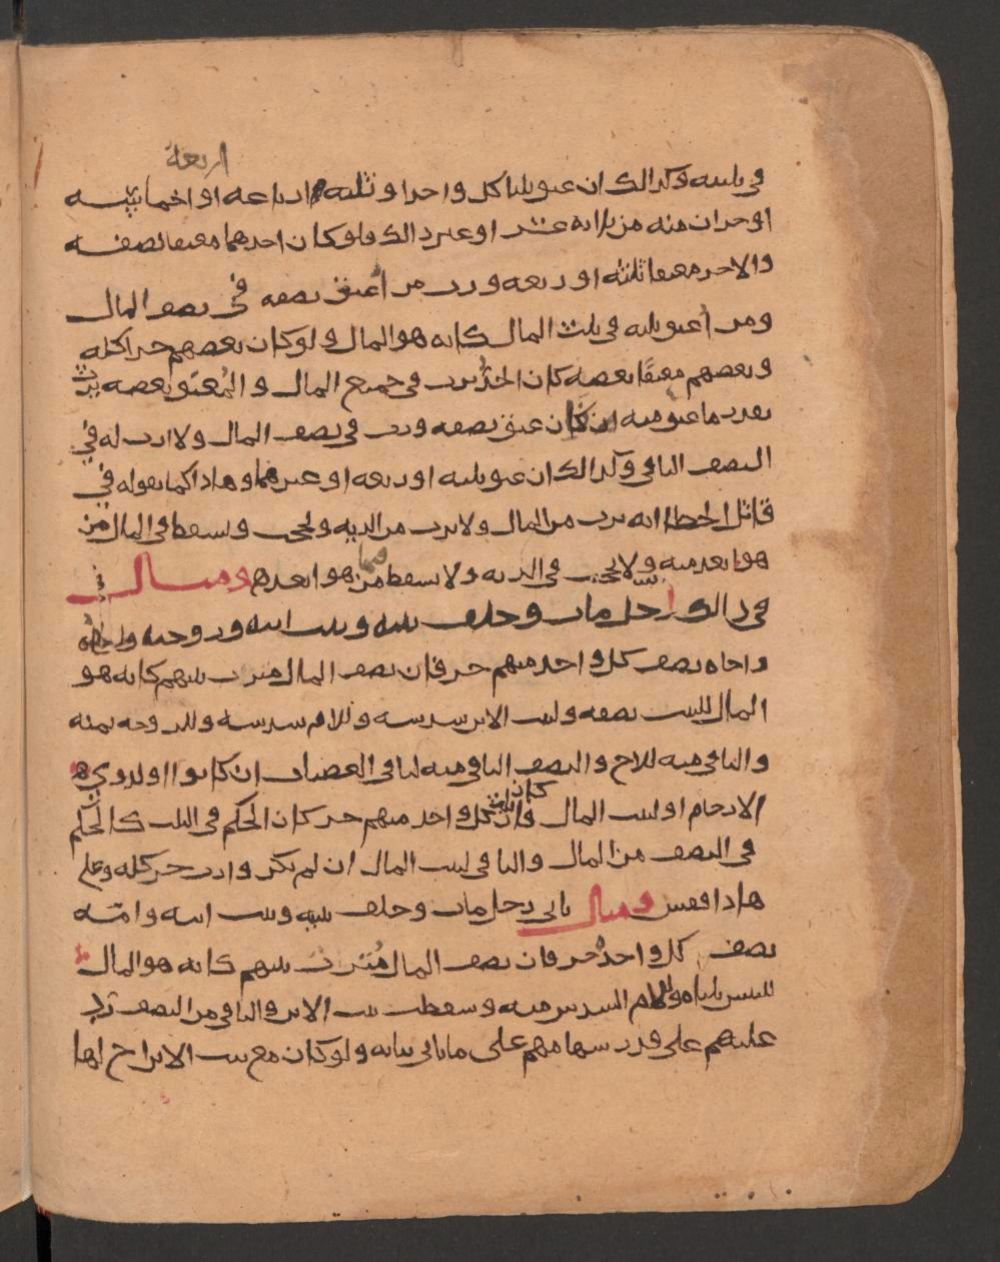 اربعة
في ثلثيه وكذالك ان عتق ثلثا كل واحد او ثلثه او ارباعه او اخماسه
او جزان منه من ثلاثة عشر او غير ذالك فلو كان احدهما معتقا نصفه
والاخر معتقا ثلثه او ربعه ورث من أعتق نصفه في نصف المال
ومن أعتق ثلثه في ثلث المال كانه هو المال ولو كان بعضهم حرا كله
وبعضهم معتقًا بعضه كان الحُرُّ يرث في جميع المال والمُعتق بعضه يرث
بقدر ما عتق منه ان كان عتق نصفه ورث في نصف المال ولا ارث له في
النصف الباقي وكذالك ان عتق ثلثه او ربعه او غيرهما وهاذا كما نقوله في
قاتل الخطاا انه يرث من المال ولا يرث من الديه ويحجب ويسقط في المال من
هو ابعد منه ولا يحجب في الديه ولا يسقط من هو ابعد ومثال
في ذالك رجل مات وخلف بنته وبنت ابنه وزوجته وامه
واخاه نصف كل واحد منهم حر فان نصف المال ميراث بينهم كانه هو
المال للبنت نصفه ولبنت الابن سدسه وللام سدسه وللزوجه ثمنه
والباقي منه للاخ والنصف الباقي منه لباقي العصبات ان كانوا او لذوي
الارحام او لبيت المال فان كان ثلث كل واحد منهم حر كان الحكم في الثلث كالحكم
في النصف من المال والباقي لبيت المال ان لم يكن وارث حر كله وعلى
هاذا فقس ومثال ثاني رجل مات وخلف بنتيه وبنت ابنه وامه
نصف كل واحد حر فان نصف المال مُيراث بينهم كانه هو المال
للبنتين ثلثاه وللام السدس منه وسقطت بنت الابن والباقي من النصف رد
عليهم على قدر سهامهم على ما ياتي بيانه ولو كان مع بنت الابن اخ لها